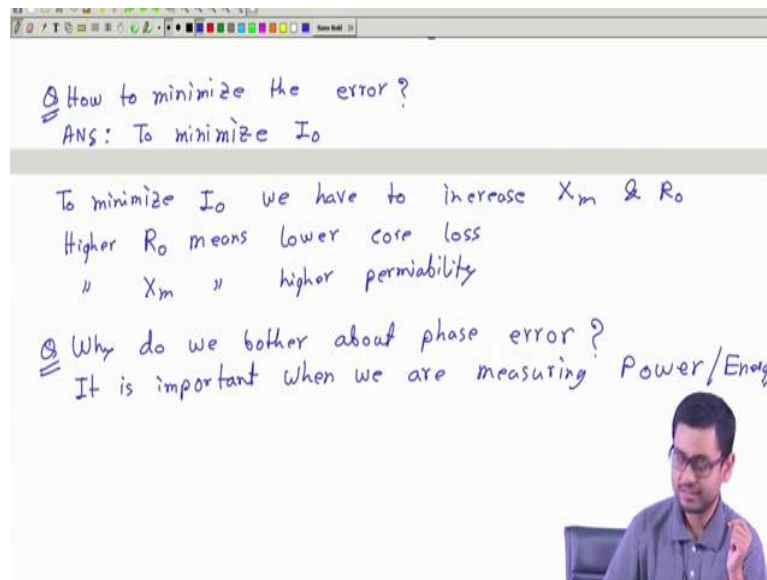 Q How to minimize the error?
ANS: To minimize I₀
To minimize I₀ we have to increase Xₘ & R₀
Higher R₀ means lower core loss
" Xₘ " higher permiability
Q Why do we bother about phase error?
It is important when we are measuring Power/Energ